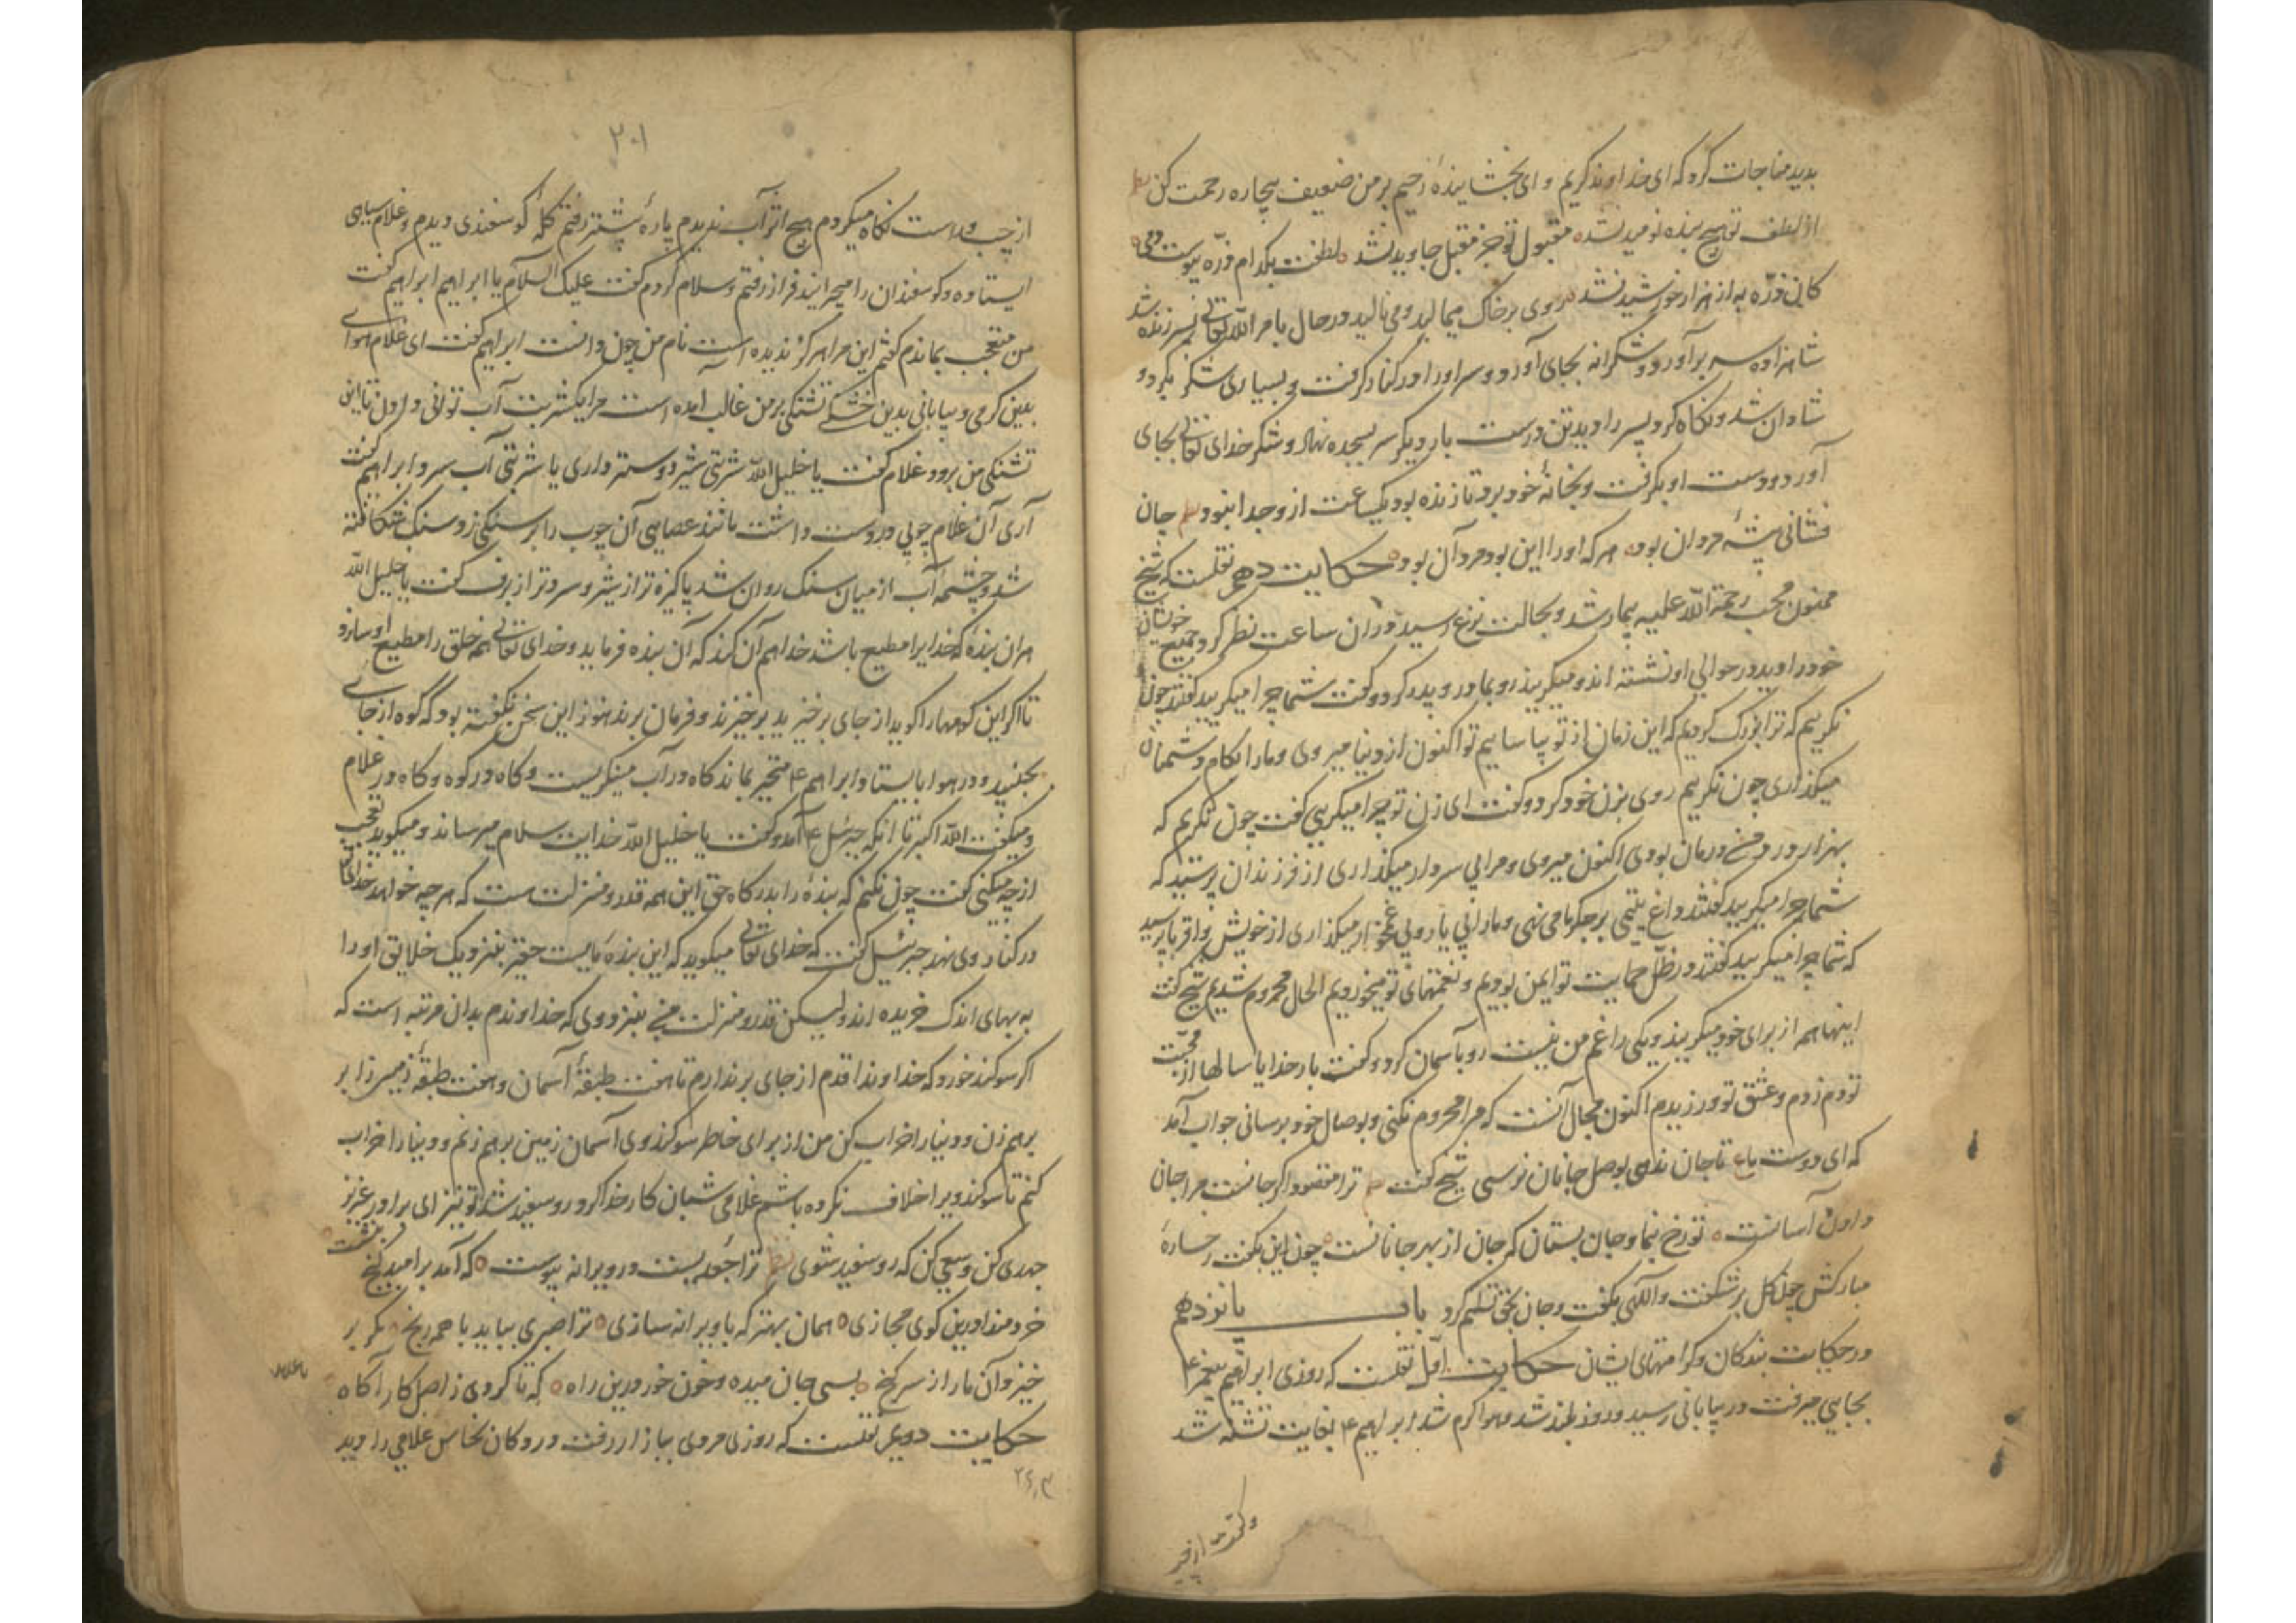 بدید مناجات کرد که ای خداوند کریم و ای بخشاینده رحیم بر من ضعیف بیچاره رحمت کن
از لطف تو هیچ بنده نومید نشد مقبول تو جز مقبل جاوید نشد لطفت بکدام ذره پیوست دمی
کان ذره به از هزار خورشید نشد روی بر خاک میمالید و می نالید در حال بامر الله تعالی پسر زنده شد
شاهزاده سر برآورد و شکرانه بجای آورد و سر او را در کنار گرفت و بسیاری شکر بکرد و
شادان شد و نگاه کرد پسر را دید تن درست بار دیگر سر بسجده نهاد و شکر خدای تعالی بجای
آورد و دست او بگرفت و بخانه خود برد تا زنده بود یکساعت از وجدا نبود جان
فشانی پیشه مردان بود هر که او را این بود مرد آن بود حکایت دهم نقلست که شیخ
ممنون محب رحمة الله علیه بیمار شد و بحالت نزع رسید در آن ساعت نظر کرد جمیع خویشان
خود را دید در حوالی او نشسته اند و میگریند رو بمادر و پدر کرد و گفت شما چرا میگریید گفتند چون
نگرییم که ترا بزرگ کردیم که این زمان از تو بیاساییم تو اکنون از دنیا میروی و ما را بکام دشمنان
میگذاری چون نگرییم روی بزن خود کرد و گفت ای زن تو چرا میگریی گفت چون نگریم که
بهزار درد مرا درمان بودی اکنون میروی و مرا بی سردار میگذاری از فرزندان پرسید که
شما چرا میگریید گفتند داغ یتیمی بر جگر ما می نهی و ما را بی یار و بی غمخوار میگذاری از خویش و اقربا پرسید
که شما چرا میگریید گفتند در ظل حمایت تو ایمن بودیم و نعمتهای تو میخوردیم الحال محروم شدیم شیخ گفت
اینها همه از برای خود میگریند و یکی را غم من نیست رو بآسمان کرد و گفت بار خدایا سالها از محبت
تو دم زدم و عشق تو ورزیدم اکنون محال آنست که مرا محروم نکنی و بوصال خود برسانی جواب آمد
که ای دوست ما تا جان ندهی بوصل جانان نرسی شیخ گفت ترا مقصود اگر جانست مرا جان
دادن آسانست تو رخ بنما و جان بستان که جان از بهر جانانست چون این بگفت رخساره
مبارکش چون گل برشکفت و اللهی بگفت و جان بحق تسلیم کرد باب پانزدهم
در حکایت بندگان و کرامتهای ایشان حکایت اول نقلست که روزی ابراهیم پیغمبر ۴
بجایی میرفت در بیابانی رسید و روز بلند شد و هوا گرم شد ابراهیم ۴ بغایت تشنه شد
۲۰۱
از چپ و راست نگاه میکردم هیچ اثر آب ندیدم پاره پیشتر رفتم گله گوسفندی دیدم و غلام سیاهی
ایستاده و گوسفندان را میچرانید فراز رفتم و سلام کردم گفت علیک السلام یا ابراهیم ابراهیم گفت
من متعجب بماندم گفتم این مرا هرگز ندیده است نام من چون دانست ابراهیم گفت ای غلام هوای
بدین گرمی و بیابانی بدین خشکی تشنگی بر من غالب آمده است مرا یکشربت آب توانی دادن تا این
تشنگی من برود غلام گفت یا خلیل الله شربتی شیر دوستر داری یا شربتی آب سرد ابراهیم گفت
آری آن غلام چوبی در دست داشت مانند عصایی آن چوب را بر سنگی زد سنگ شکافته
شد و چشمه آب از میان سنگ روان شد پاکیزه تر از شیر و سردتر از برف گفت یا خلیل الله
هر آن بنده که خدایرا مطیع باشد خدا هم آن کند که آن بنده فرماید و خدای تعالی همه خلق را مطیع او سازد
تا اگر این کوهها را گوید از جای برخیزید برخیزند و فرمان برند هنوز این سخن نگفته بود که کوه از جای
بجنبید و در هوا بایستاد ابراهیم ۴ متحیر بماند گاه در آب مینگریست و گاه در کوه و گاه در غلام
و میگفت الله اکبر تا آنکه جبرئیل ۴ آمد و گفت یا خلیل الله خدایت سلام میرساند و میگوید تعجب
از چه میکنی گفت چون نکنم که بنده را بدرگاه حق این همه قدر و منزلت هست که هر چه خواهد خدای تعالی
در کنار وی نهد جبرئیل گفت که خدای تعالی میگوید که این بنده ایست حقیر بنزدیک خلایق او را
به بهای اندک خریده اند ولیکن قدر و منزلت بنزد وی که خداوندم بدان مرتبه است که
اگر سوگند خورد که خداوندا قدم از جای برندارم تا هفت طبقه آسمان و هفت طبقه زمین را بر
برهم زن و دنیا را خراب کن من از برای خاطر سوگند وی آسمان زمین برهم زنم و دنیا را خراب
کنم تا سوگند ویرا خلاف نکرده باشم غلامی شبان کار خدا کرد رو سفید شد تو نیز ای برادر عزیز
جهدی کن و سعیی کن که رو سفید شوی ترا جغدیست در ویرانه پیوست که آمد بر امید گنج بنشست
خردمندا درین کوی مجازی همان بهتر که با ویرانه سازی ترا صبری بباید با همه رنج مگر بر
خیزد آن مار از سر گنج بسی جان میده و خون خور درین راه که تا گردی ز اصل کار آگاه
حکایت دویم نقلست که روزی مردی ببازار رفت در دکان نخاس غلامی را دید